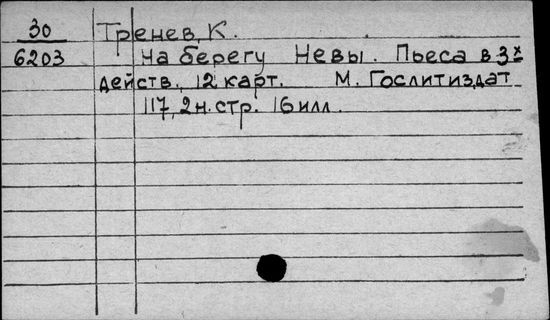 30 Тренев, К.
6203 На берегу Невы. Пьеса в 3х
действ., 12 карт. М. Гослитиздат
117, 2 н. стр. 16 илл.